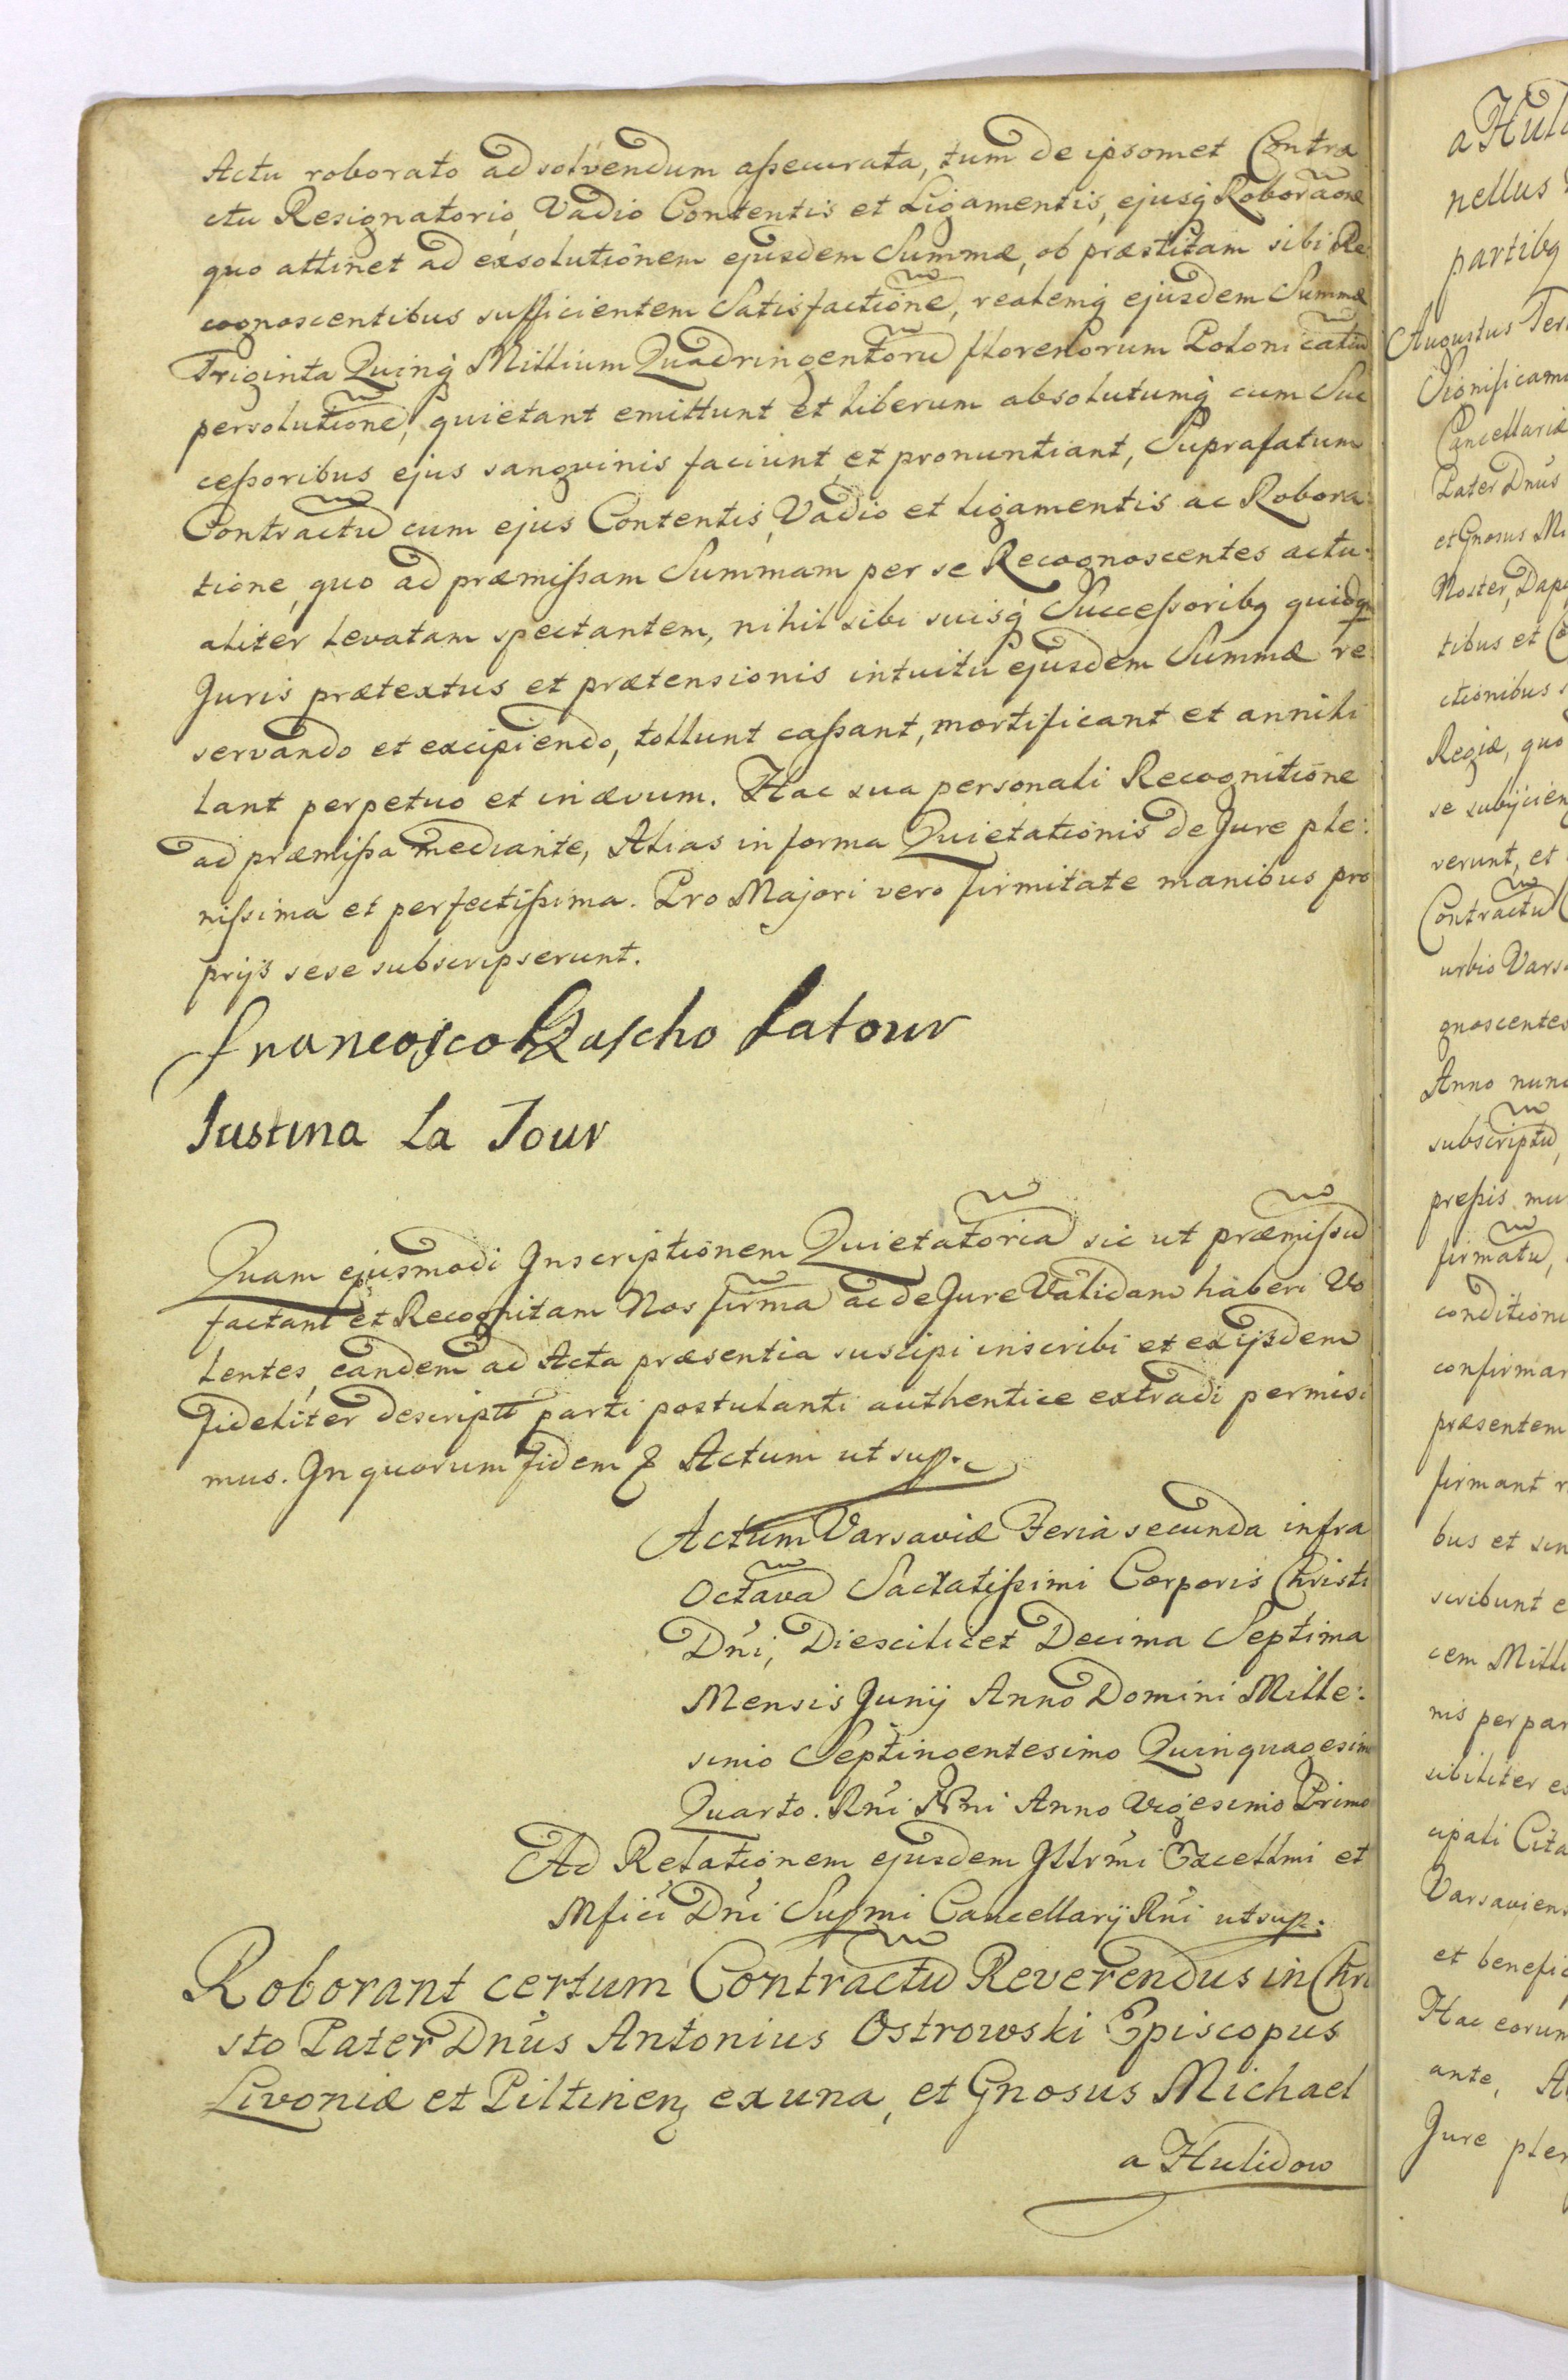 Actu roborato ad solvendum assecurata, tum de ipsomet Contra
ctu Resignatorio, Vadio Contentis et Ligamentis, ejusq Roboraone
quo attinet ad exsolutionem ejusdem Summæ, ob præstitam sibi Re
cognoscentibus sufficientem Satisfactione, realemq ejusdem Summæ
Triginta Quinq Millium Quadringentoru florenorum Polonicaliu
persolutione, quietant emittunt et liberum absolutumq cum Suc
cessoribus ejus sangvinis faciunt et pronuntiant, Suprafatum
Contractu cum ejus Contentis, Vadio et ligamentis ac Robora:
tione, quo ad præmissam Summam per se Recognoscentes actu:
aliter levatam spectantem, nihil sibi suisq Successoribq quidqm
Juris prætextus et prætensionis intuitu ejusdem Summæ re:
servando et excipiendo, tollunt cassant, mortificant et annihi
lant perpetuo et in ævum. Hac sua personali Recognitione
ad præmissa mediante, Alias in forma Quietationis de Jure ple:
nissima et perfectissima. Pro Majori vero firmitate manibus pro
prijs sese subscripserunt.
Latour
Justina La Tour
Quam ejusmodi Inscriptionem Quietatoria sic ut præmissu
factam et Recognitam Nos firma ac de Jure Validam haberi Vo
lentes, eandem ad Acta præsentia suscipi inscribi et ex ijsdem
fideliter descriptt parti postulanti authentice extradi permisi
mus. In quorum fidem & Actum ut sup.
Actum Varsaviæ Feria secunda infra
Octava Sacratissimi Corporis Christi
Dni, Die scilicet Decima Septima
Mensis Junij Anno Domini Mille:
simo Septingentesimo Quinquagesimo
Quarto. Rni Nri Anno Vigesimo Primo
Ad Relationem ejusdem Illrmi Excellmi et
Mfici Dni Supmi Cancellarij Rni ut sup.
Roborant certum Contractu Reverendus in Chri
sto Pater Dnus Antonius Ostrowski Episcopus
Livoniæ et Piltinen ex una, et Gnosus Michael
a Hulidow
a Huli
nellus
partibq
Augustus Ter
Significam
Cancellariæ
Pater Dnus
et Gnosus Mi
Noster, Dap
tibus et
ctionibus
Regiæ, quo
se subijcien
verunt, et
Contractu
urbio Vars
gnoscentes
Anno nunc
subscriptu,
pressis mu
firmatu,
conditioni
confirmar
præsentem
firmant r
bus et sin
scribunt e
cem Milli
nis per par
sibiliter es
cipali Cita
Varsaviens
et benefic
Hac eorum
ante, A
Jure plen